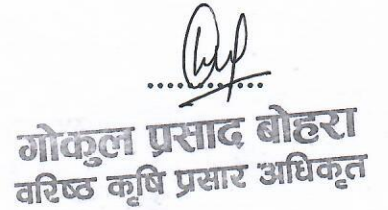 गोकुल प्रसाद बोहरा
वरिष्ठ कृषि प्रसार अधिकृत